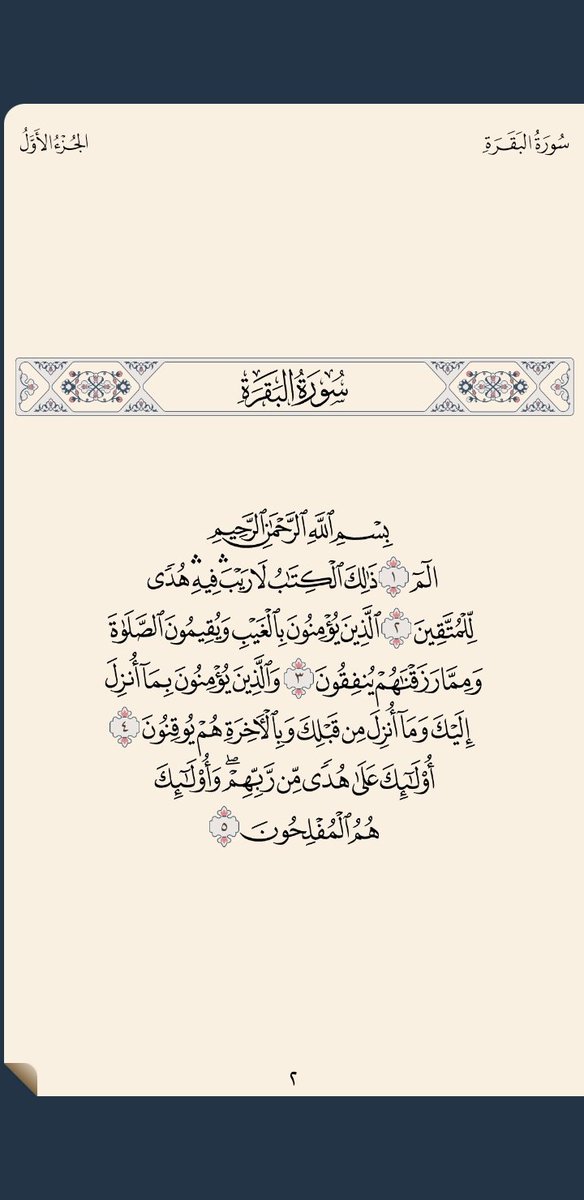 سُورَةُ البَقَرَةِ
الجُزْءُ الأَوَّلُ
سُورَةُ البَقَرَةِ
بِسْمِ ٱللَّهِ ٱلرَّحْمَٰنِ ٱلرَّحِيمِ
الٓمٓ ١ ذَٰلِكَ ٱلْكِتَٰبُ لَا رَيْبَۛ فِيهِۛ هُدًى
لِّلْمُتَّقِينَ ٢ ٱلَّذِينَ يُؤْمِنُونَ بِٱلْغَيْبِ وَيُقِيمُونَ ٱلصَّلَوٰةَ
وَمِمَّا رَزَقْنَٰهُمْ يُنفِقُونَ ٣ وَٱلَّذِينَ يُؤْمِنُونَ بِمَآ أُنزِلَ
إِلَيْكَ وَمَآ أُنزِلَ مِن قَبْلِكَ وَبِٱلْأَخِرَةِ هُمْ يُوقِنُونَ ٤
أُوْلَٰٓئِكَ عَلَىٰ هُدًى مِّن رَّبِّهِمْۖ وَأُوْلَٰٓئِكَ
هُمُ ٱلْمُفْلِحُونَ ٥
٢